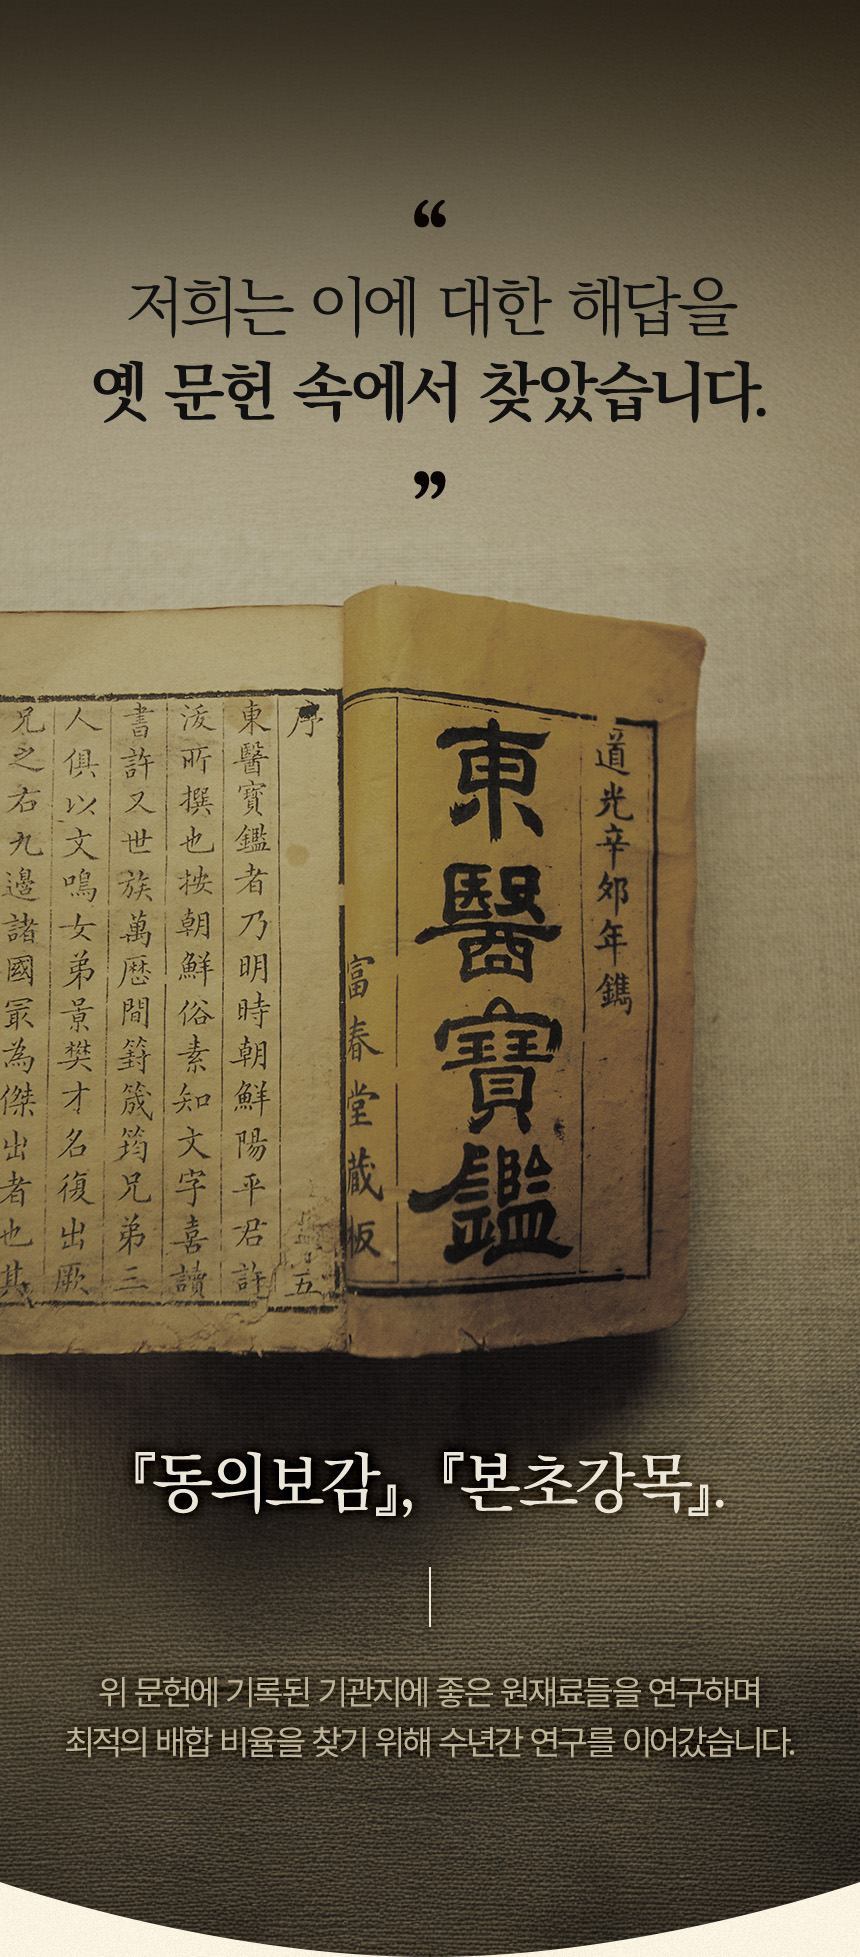 “
저희는 이에 대한 해답을
옛 문헌 속에서 찾았습니다.
”
道光辛卯年鐫
東醫寶鑑
富春堂藏板
序 五
東醫寶鑑者乃明時朝鮮陽平君許
浚所撰也按朝鮮俗素知文字喜讀
書許又世族萬歷間篈筬筠兄弟三
人俱以文鳴女弟景樊才名復出厥
兄之右九邊諸國最為傑出者也其
『동의보감』, 『본초강목』.
위 문헌에 기록된 기관지에 좋은 원재료들을 연구하며
최적의 배합 비율을 찾기 위해 수년간 연구를 이어갔습니다.